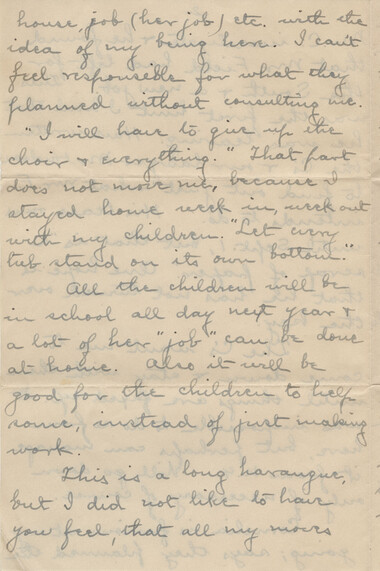 house, job (her job) etc. with the
idea of my being here. I can't
feel responsible for what they
planned without consulting me.
"I will have to give up the
choir & everything." That part
does not move me, because I
stayed home week in, week out
with my children. "Let every
tub stand on its own bottom."
All the children will be
in school all day next year &
a lot of her "job" can be done
at home. Also it will be
good for the children to help
some, instead of just making
work.
This is a long harangue,
but I did not like to have
you feel, that all my moves